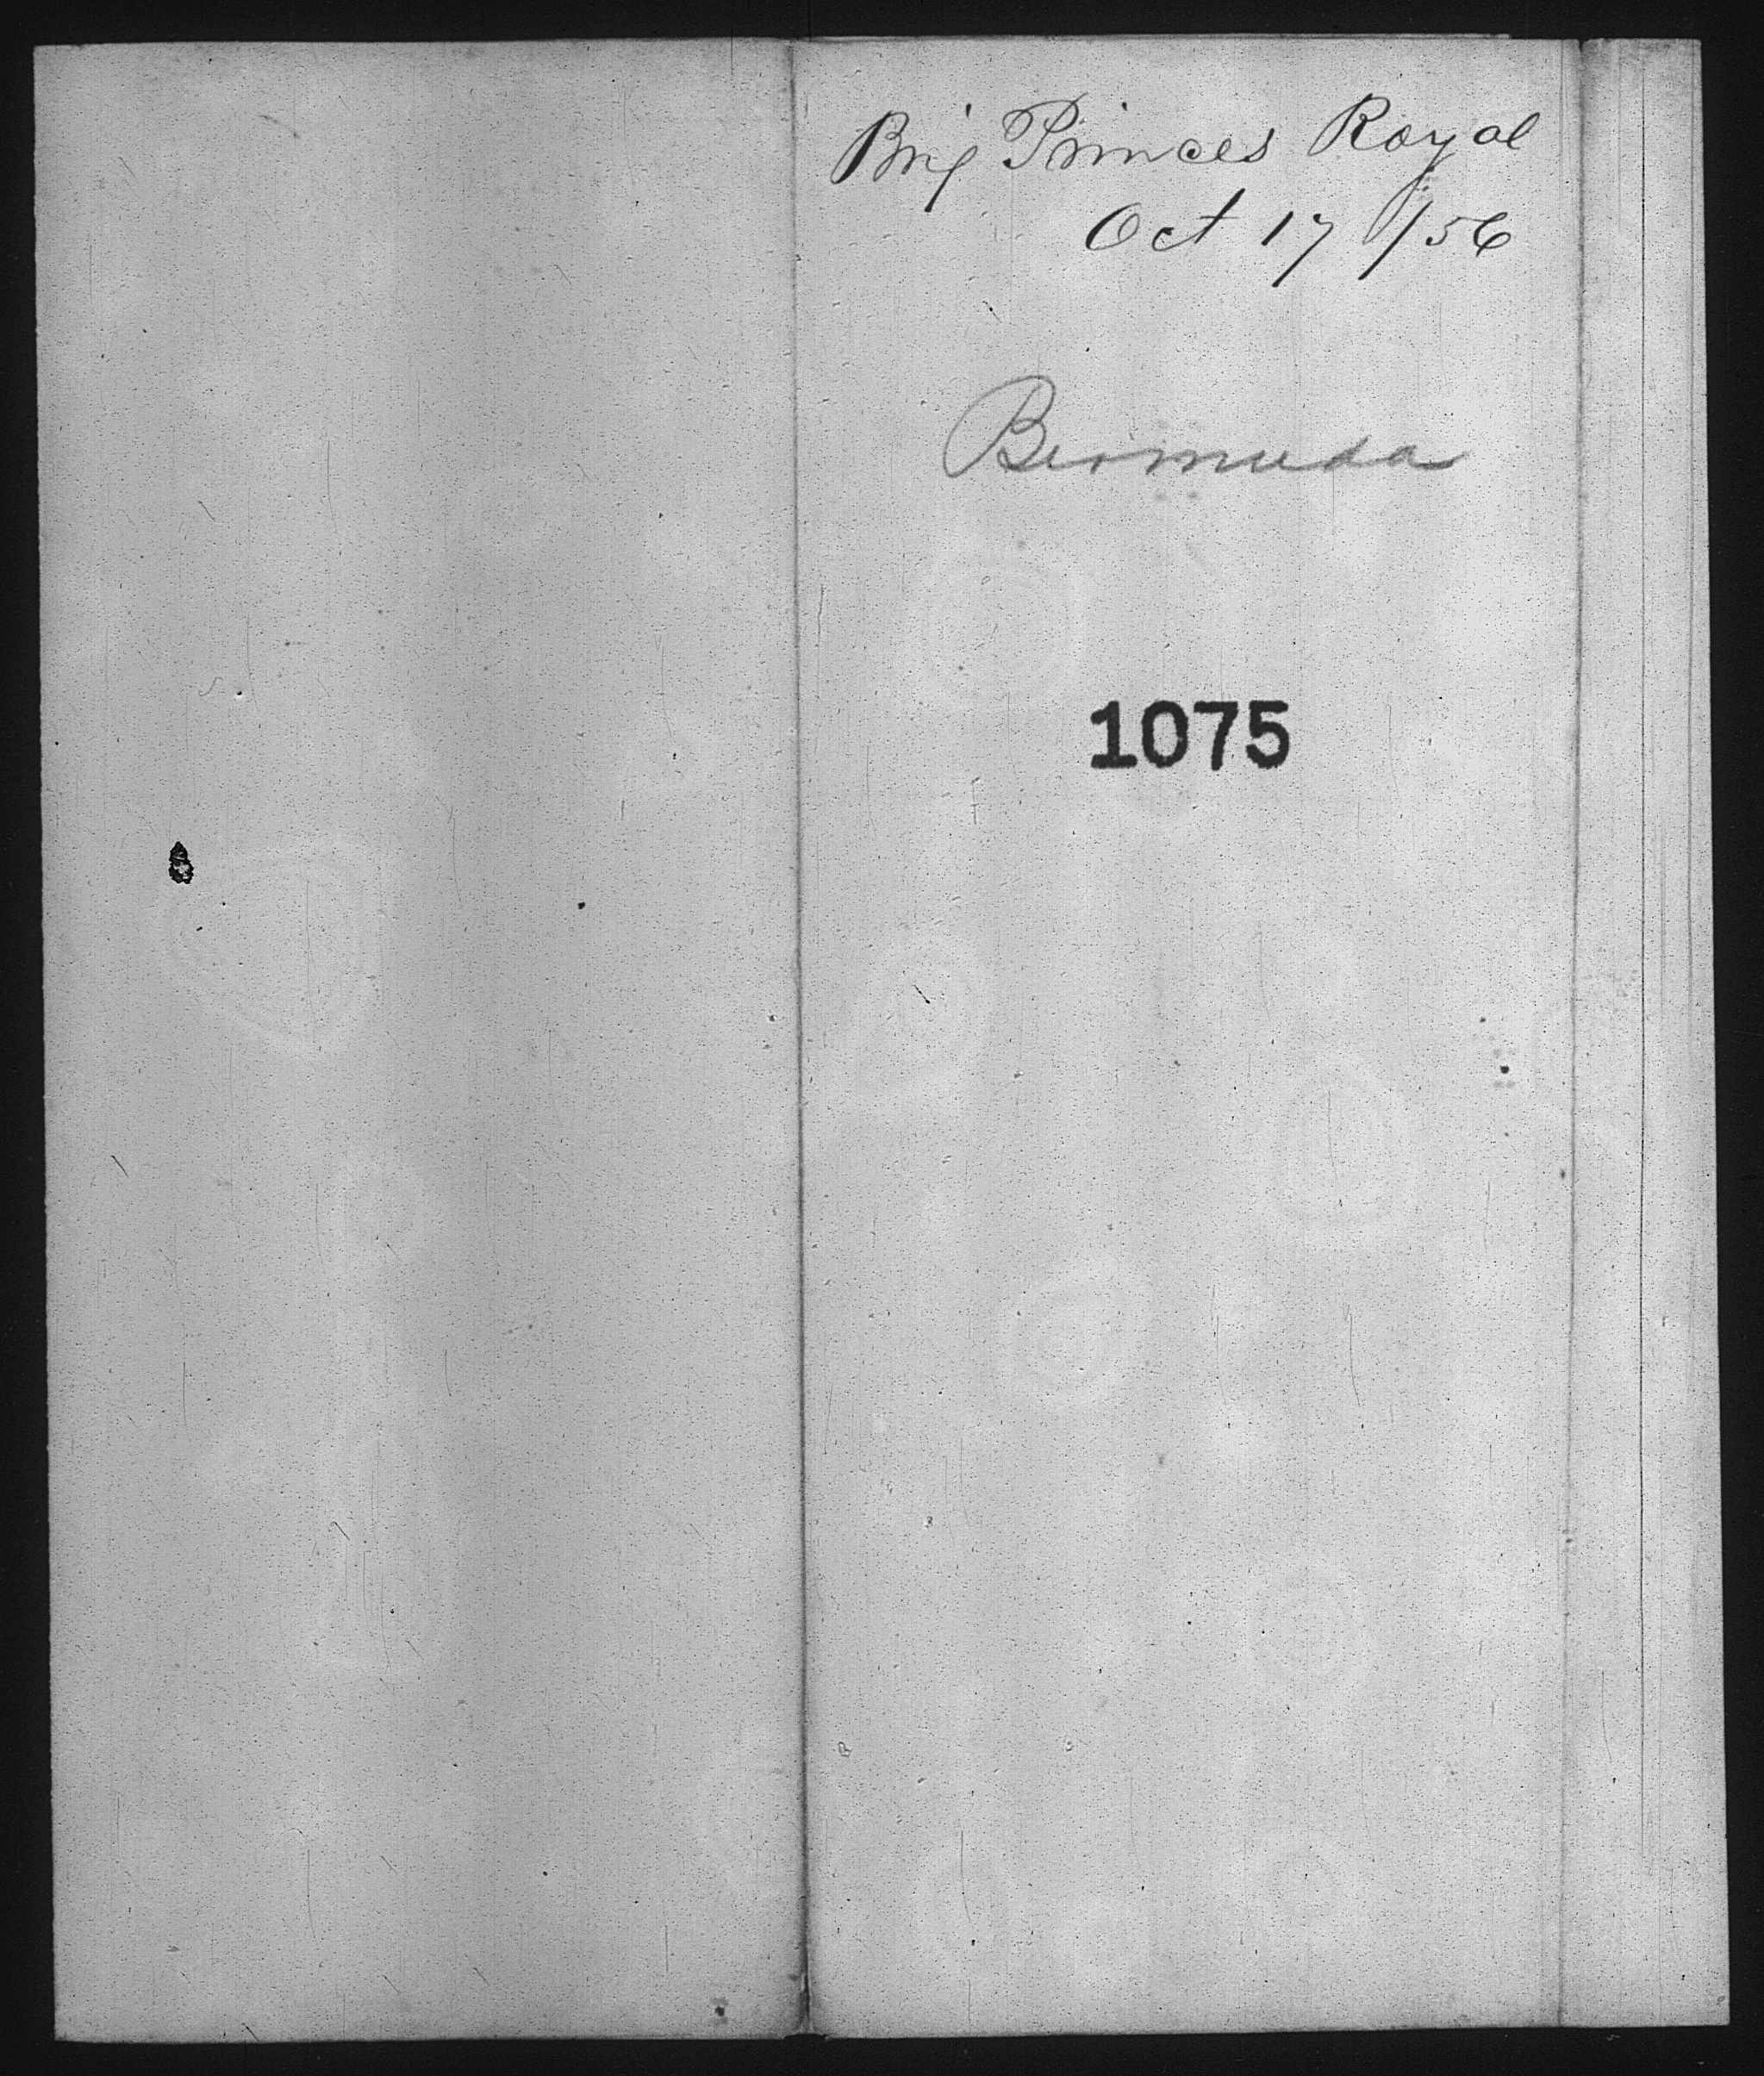 Brig Princes Royal
Oct 17 /56
Bermuda
1075